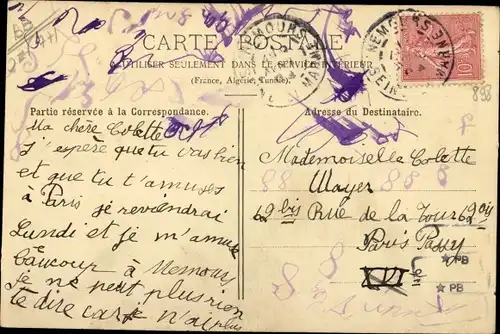 CARTE POSTALE
A UTILISER SEULEMENT DANS LE SERVICE INTÉRIEUR
(France, Algérie, Tunisie).
Partie réservée à la Correspondance.
Ma chère Colette
J'espère que tu vas bien
et que tu t'amuses
à Paris je reviendrai
Lundi et je m'amuse
beaucoup à Nemours,
je ne peut plus rien
te dire car n'ai plus
Adresse du Destinataire.
Mademoiselle Colette
Mayer
69 bis Rue de la Tour 69 bis
Paris Passy
XVI
NEMOURS
SEINE
MARNE
NEMOURS
MARNE
10
893
★ PB
★ PB